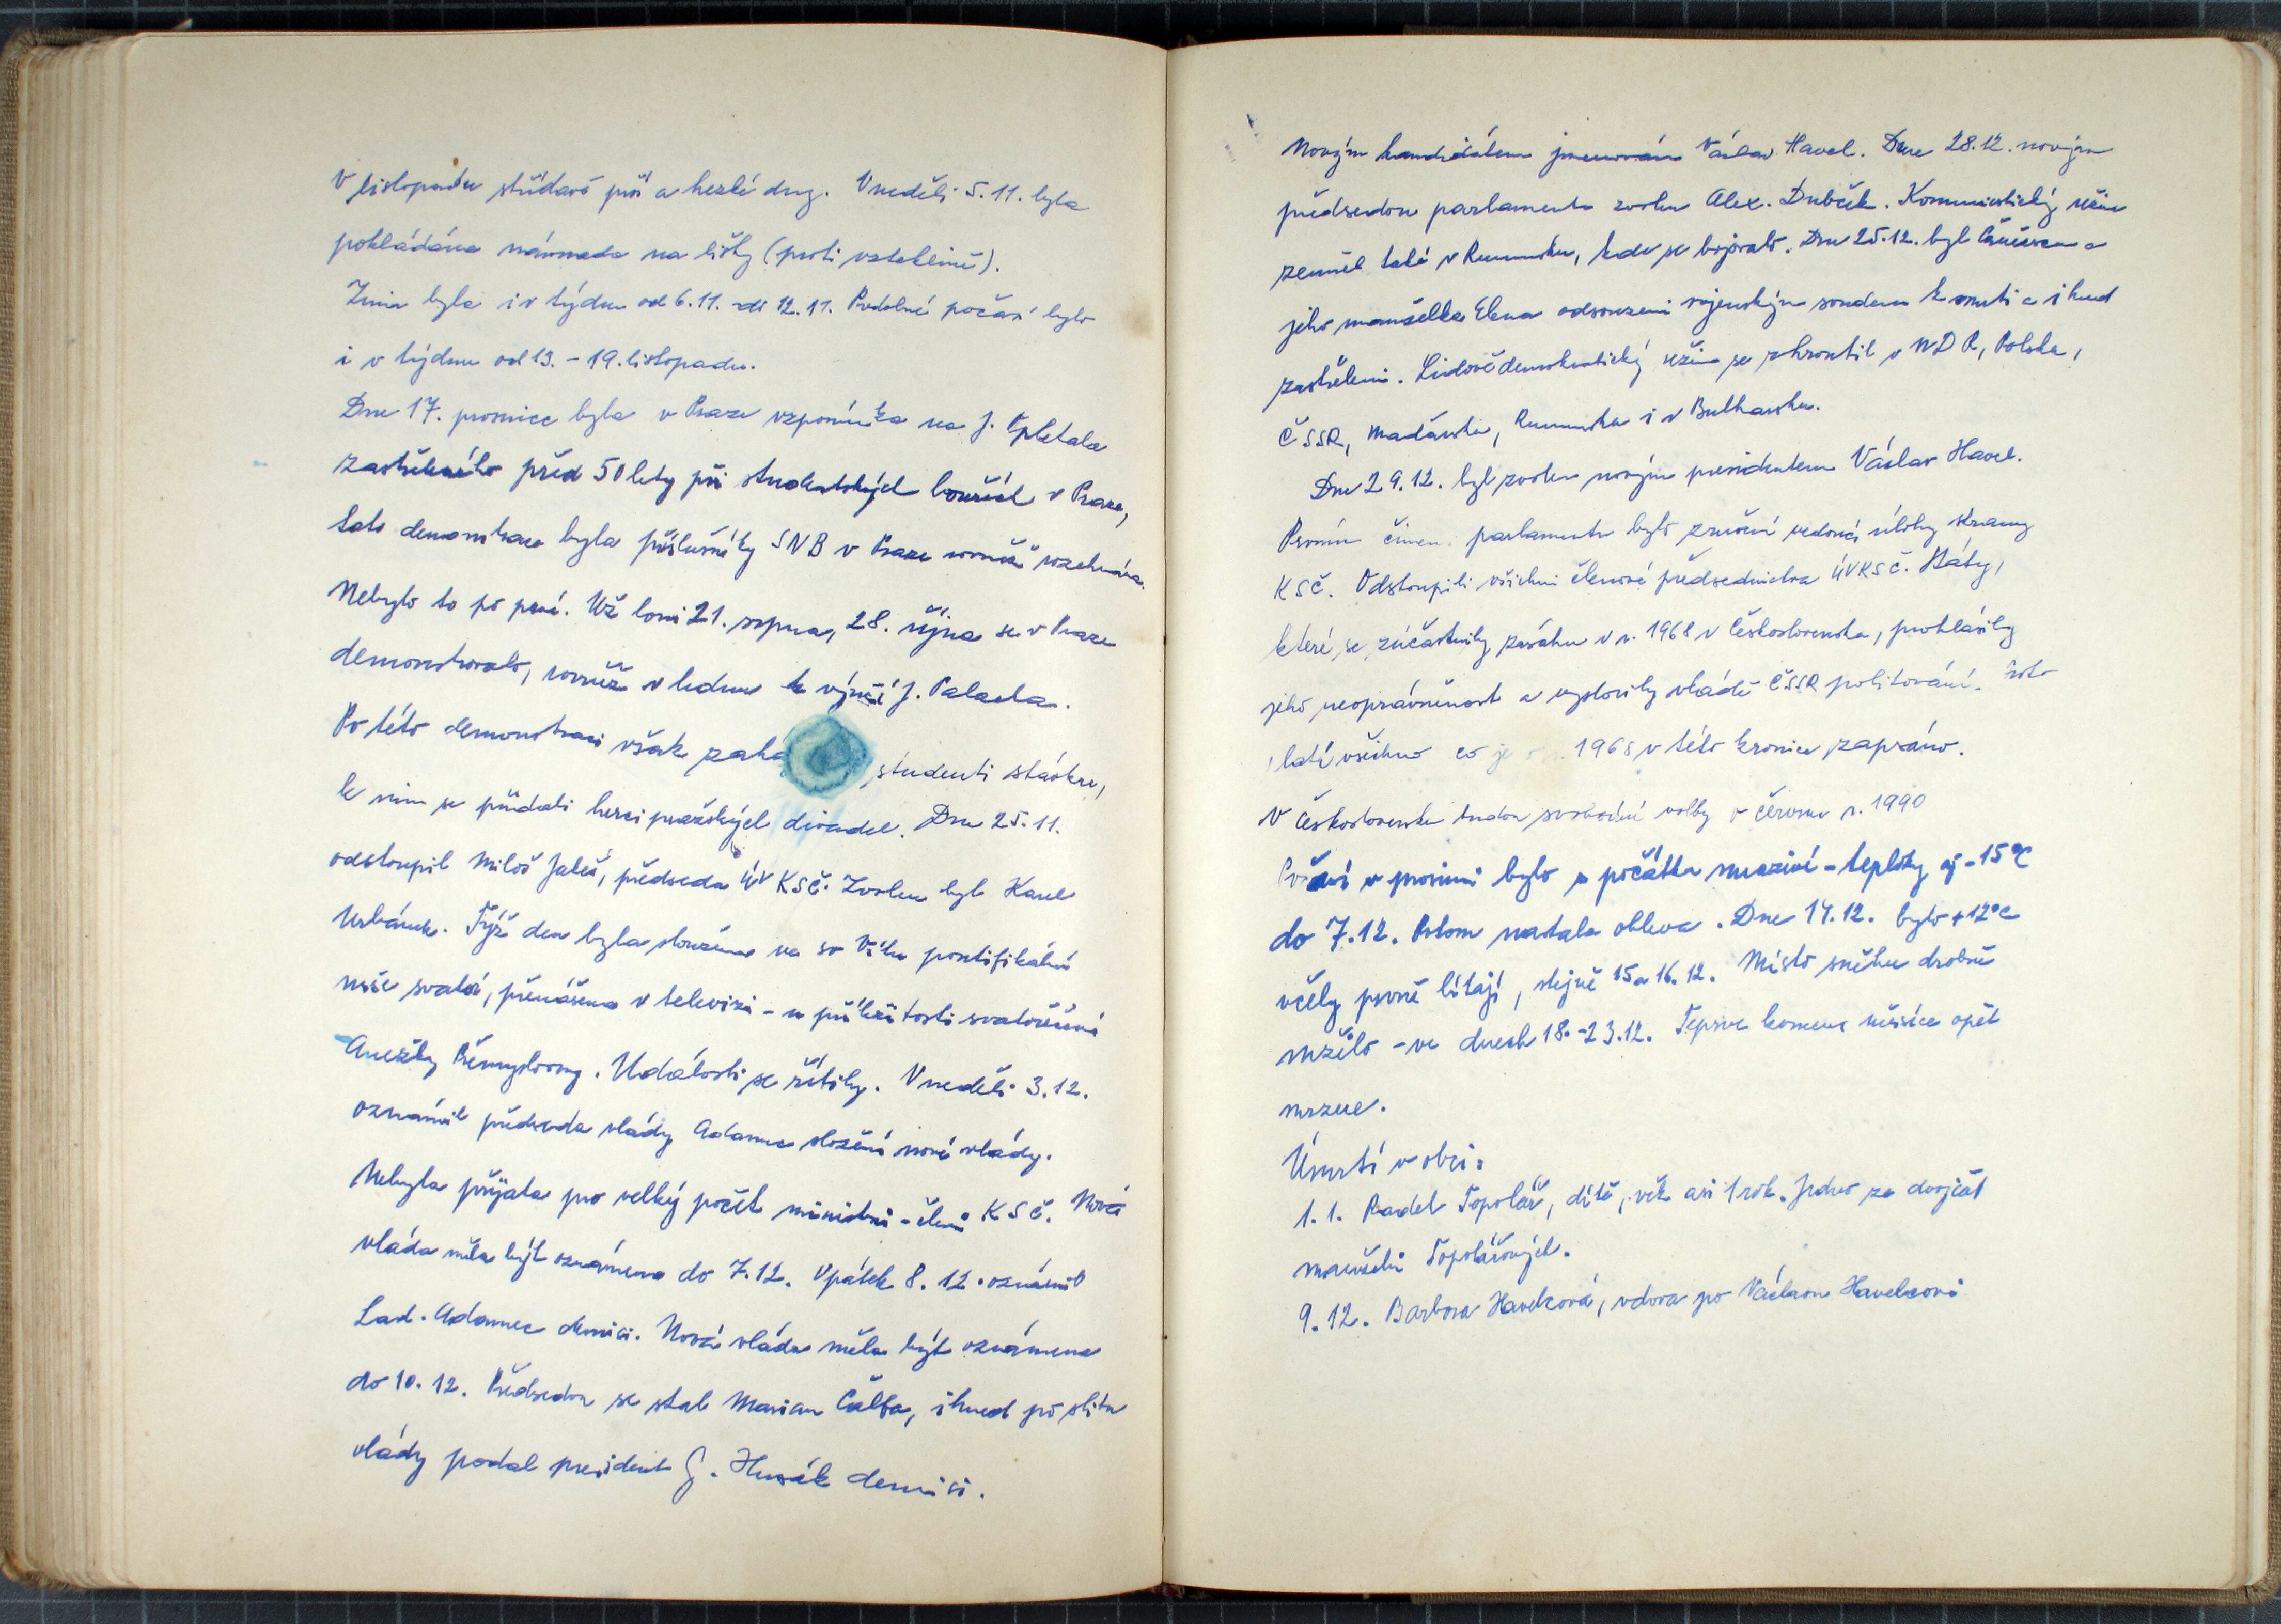 V listopadu střídavě prší a hezké dny. V neděli 5.11. byla
pokládána návnada na lišky (proti vzteklině).
Zima byla i v týdnu od 6.11. do 12.11. Podobné počasí bylo
i v týdnu od 13. - 19. listopadu.
Dne 17. prosince byla v Praze vzpomínka na J. Opletala
zastřeleného před 50 lety při studentských bouřích v Praze,
tato demonstrace byla příslušníky SNB v Praze rovněž rozehnána.
Nebylo to po prvé. Už loni 21. srpna, 28. října se v Praze
demonstrovalo, rovněž v lednu k výročí J. Palacha.
Po této demonstraci však zahá studenti stávku,
k nim se přidali herci pražských divadel. Dne 25.11.
odstoupil Miloš Jakeš, předseda ÚV KSČ. Zvolen byl Karel
Urbánek. Týž den byla sloužena na sv Vítu pontifikální
mše svatá, přenášena v televizi - u příležitosti svatořečení
Anežky Přemyslovny. Události se řítily. V neděli 3.12.
oznámil předseda vlády Adamec složení nové vlády.
Nebyla přijata pro velký počet ministrů - členů KSČ. Nová
vláda měla být oznámena do 7.12. V pátek 8.12. oznámil
Lad. Adamec demisi. Nová vláda měla být oznámena
do 10.12. Předsedou se stal Marian Čalfa, ihned po slibu
vlády podal president G. Husák demisi.
Novým kandidátem jmenován Václav Havel. Dne 28.12. novým
předsedou parlamentu zvolen Alex. Dubček. Komunistický režim
zemřel také v Rumunsku, kde se bojovalo. Dne 25.12. byl Čaučesku a
jeho manželka Elena odsouzeni vojenským soudem k smrti a ihned
zastřeleni. Lidově demokratický režim se zhroutil v NDR, Polsku,
ČSSR, Maďarsku, Rumunsku i v Bulharsku.
Dne 29.12. byl zvolen novým presidentem Václav Havel.
Prvním činem parlamentu bylo zrušení vedoucí úlohy strany
KSČ. Odstoupili všichni členové předsednictva ÚVKSČ. Státy,
které se zúčastnily zásahu v r. 1968 v Československu, prohlásily
jeho neoprávněnost a vyslovily vládě ČSSR politování. Toto
platí všechno co je 1968 v této kronice zapsáno.
V Československu budou svobodné volby v červnu r. 1990
Počasí v prosinci bylo z počátku mrazivé - teploty až -15°C
do 7.12. Potom nastala obleva. Dne 14.12. bylo +12°C
včely prvně lítají, stejně 15 a 16.12. Místo sněhu drobně
mžilo - ve dnech 18. - 23.12. Teprve koncem měsíce opět
mrzne.
Úmrtí v obci:
1.1. Radek Topolář, dítě, věk asi 1 rok. Jedno ze dvojčat
manželů Topolářových.
9.12. Barbora Havelcová, vdova po Václavu Havelcovi